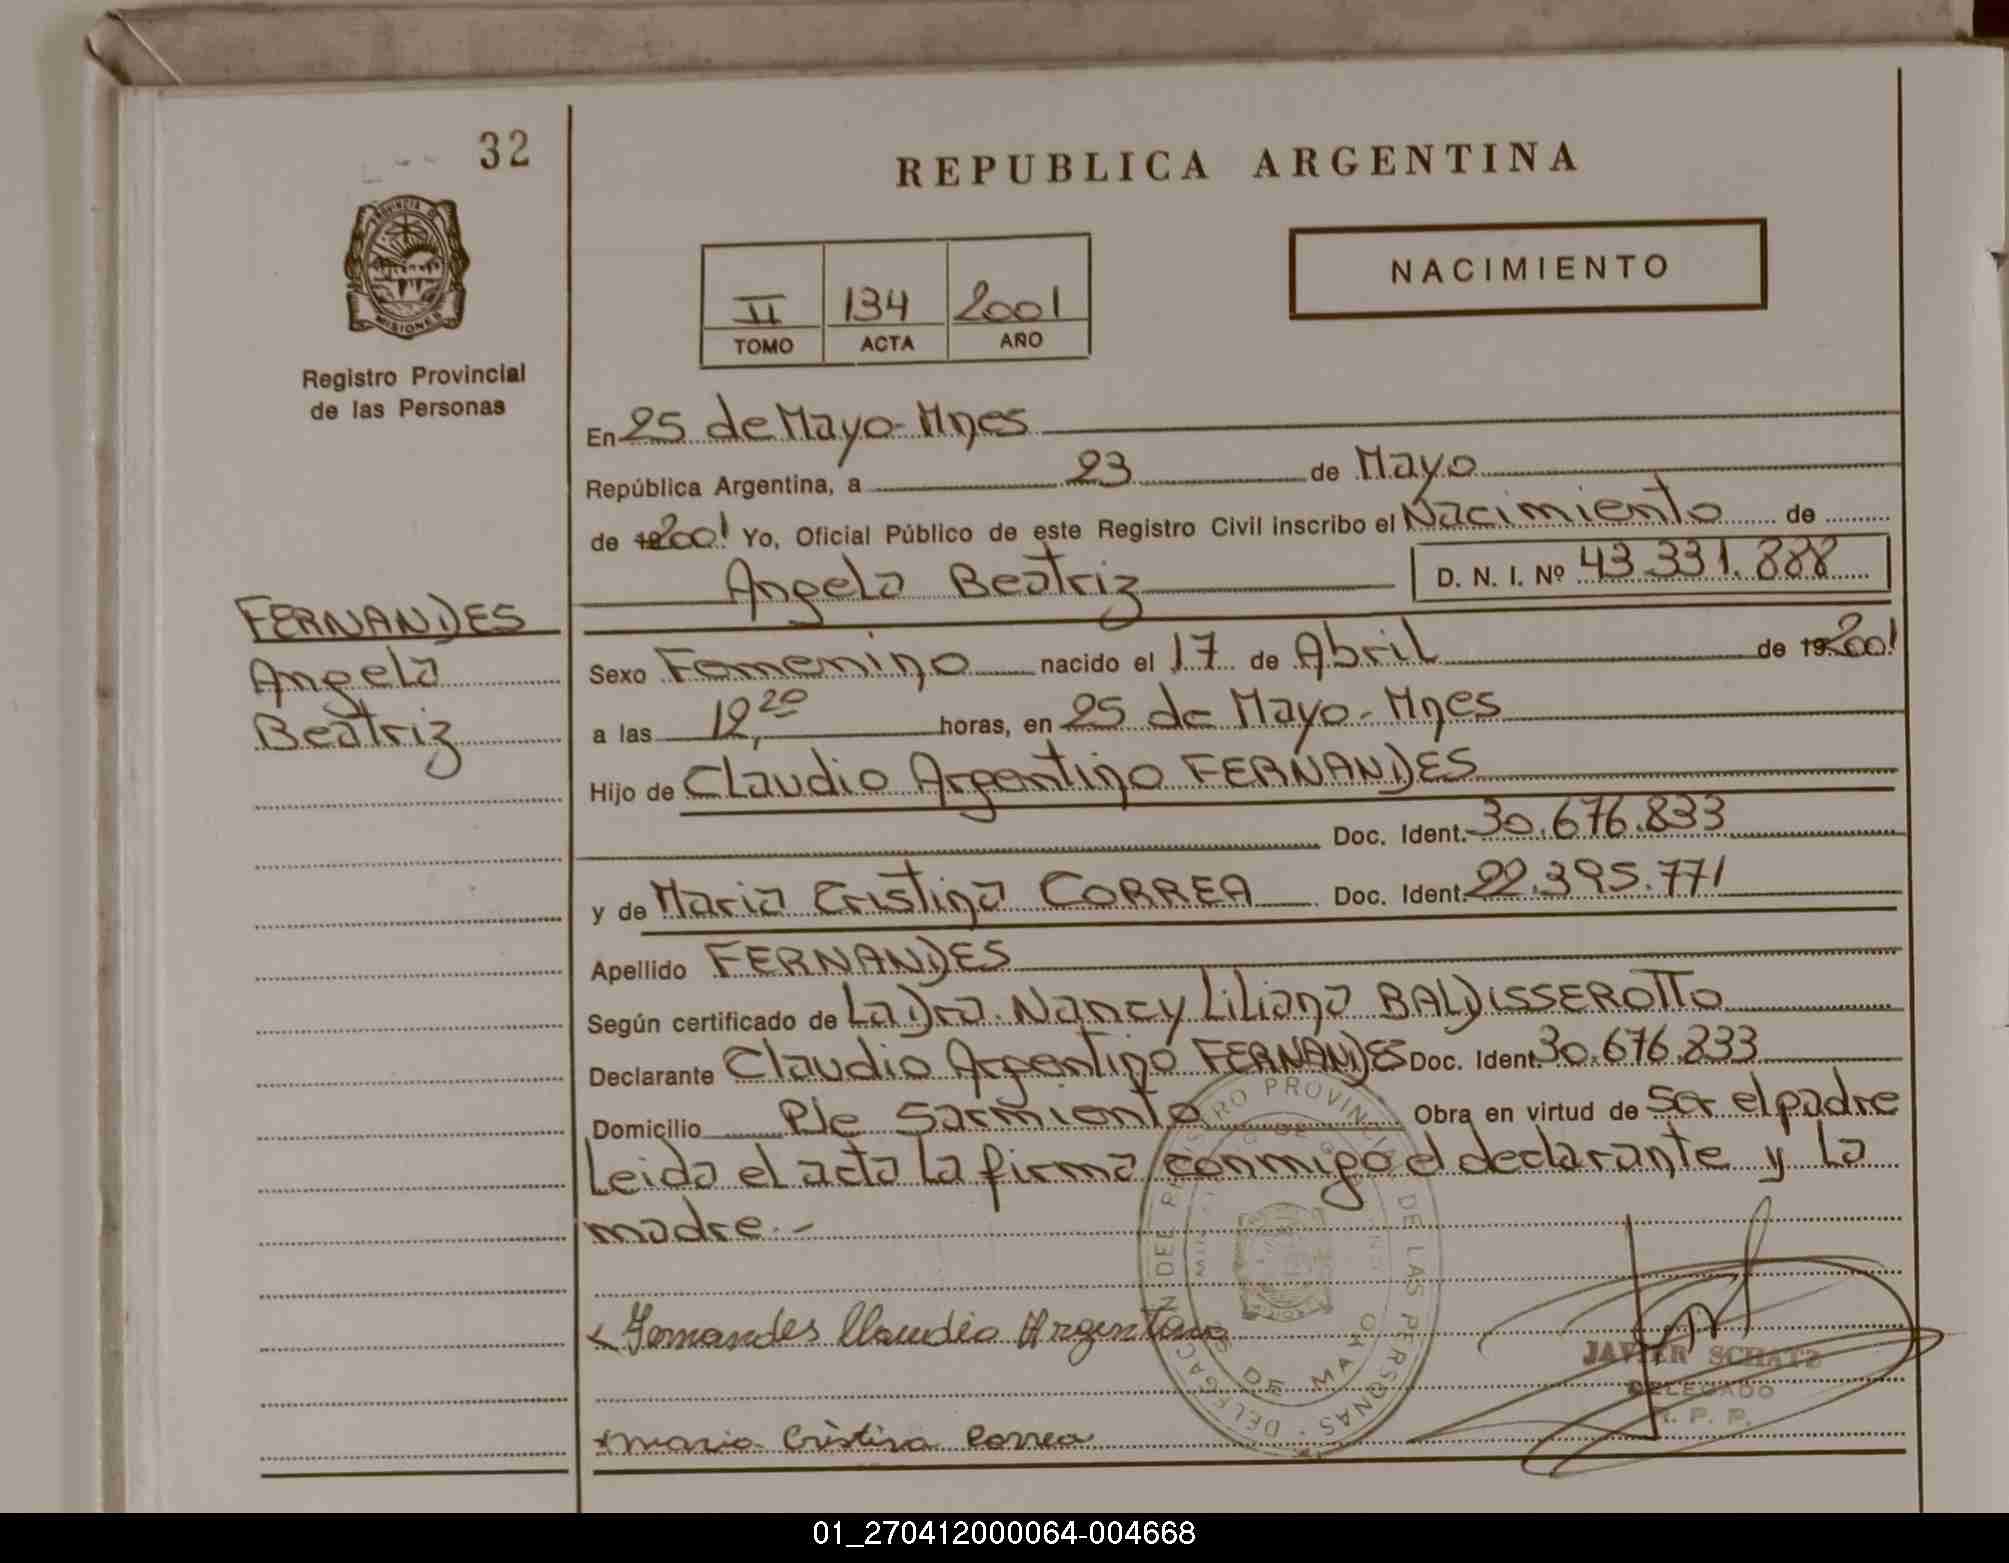 32
REPUBLICA ARGENTINA
PROVINCIA DE
MISIONES
Registro Provincial
de las Personas
II 134 2001
TOMO ACTA AÑO
NACIMIENTO
En 25 de Mayo-Mnes
República Argentina, a 23 de Mayo
de 192001 Yo, Oficial Público de este Registro Civil inscribo el Nacimiento de
Angela Beatriz D. N. I. Nº 43.331.888
FERNANDES
Angela
Beatriz
Sexo Femenino nacido el 17 de Abril de 192001
a las 12,20 horas, en 25 de Mayo-Mnes
Hijo de Claudio Argentino FERNANDES
Doc. Ident. 30.676.833
y de Maria Cristina CORREA Doc. Ident. 22.395.771
Apellido FERNANDES
Según certificado de La Dra. Nancy Liliana BALDISSEROTTO
Declarante Claudio Argentino FERNANDES Doc. Ident. 30.676.833
Domicilio Pje Sarmiento Obra en virtud de Ser el padre
Leida el acta la firma conmigo el declarante y la
madre.-
Fernandes Claudio Argentino
Maria Cristina Correa
DE MAYO
JAVIER SCHATZ
DELEGADO
R. P. P.
01_270412000064-004668